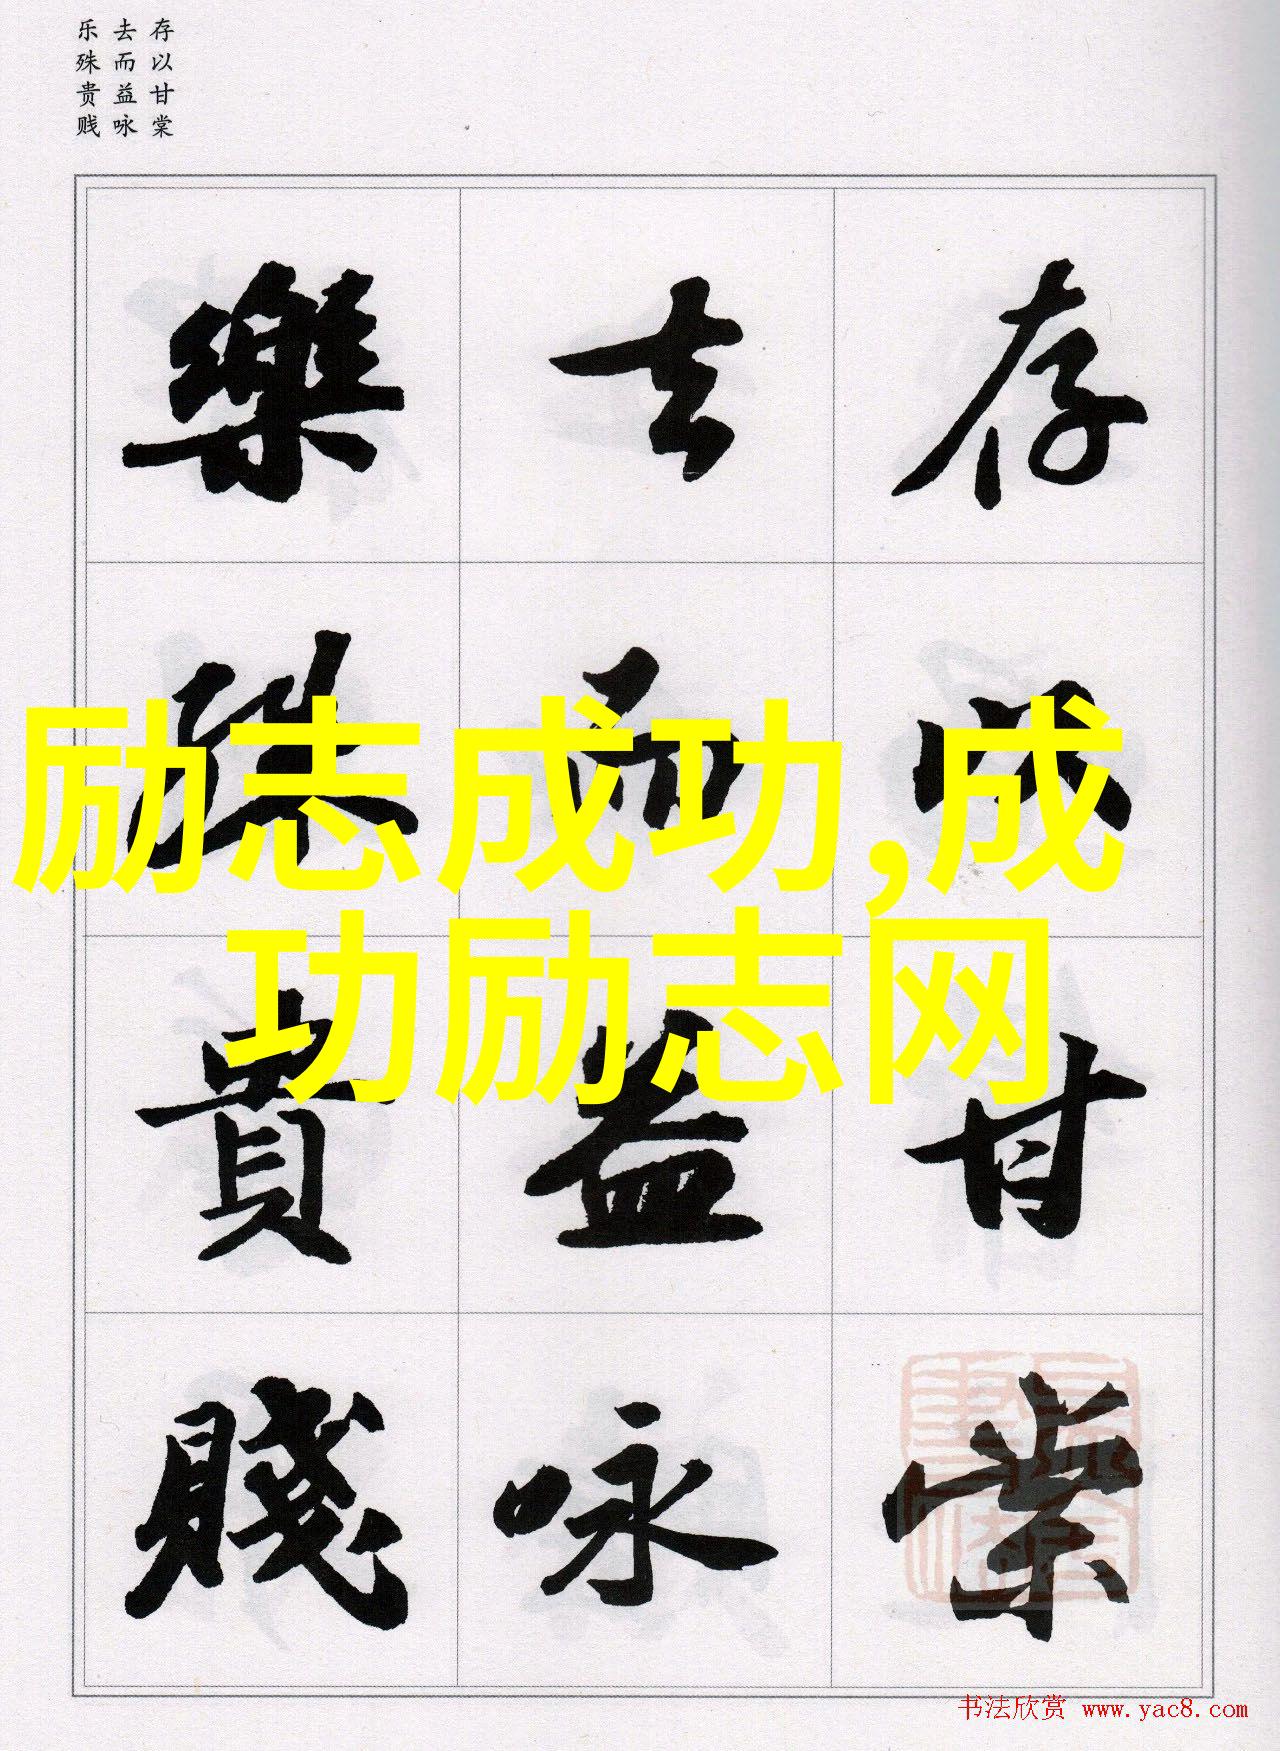 存以甘棠
去而益咏
乐殊贵贱
存以甘棠
去而益咏
樂殊貴賤
励志成功,成
功励志网
书法欣赏 www.yac8.com